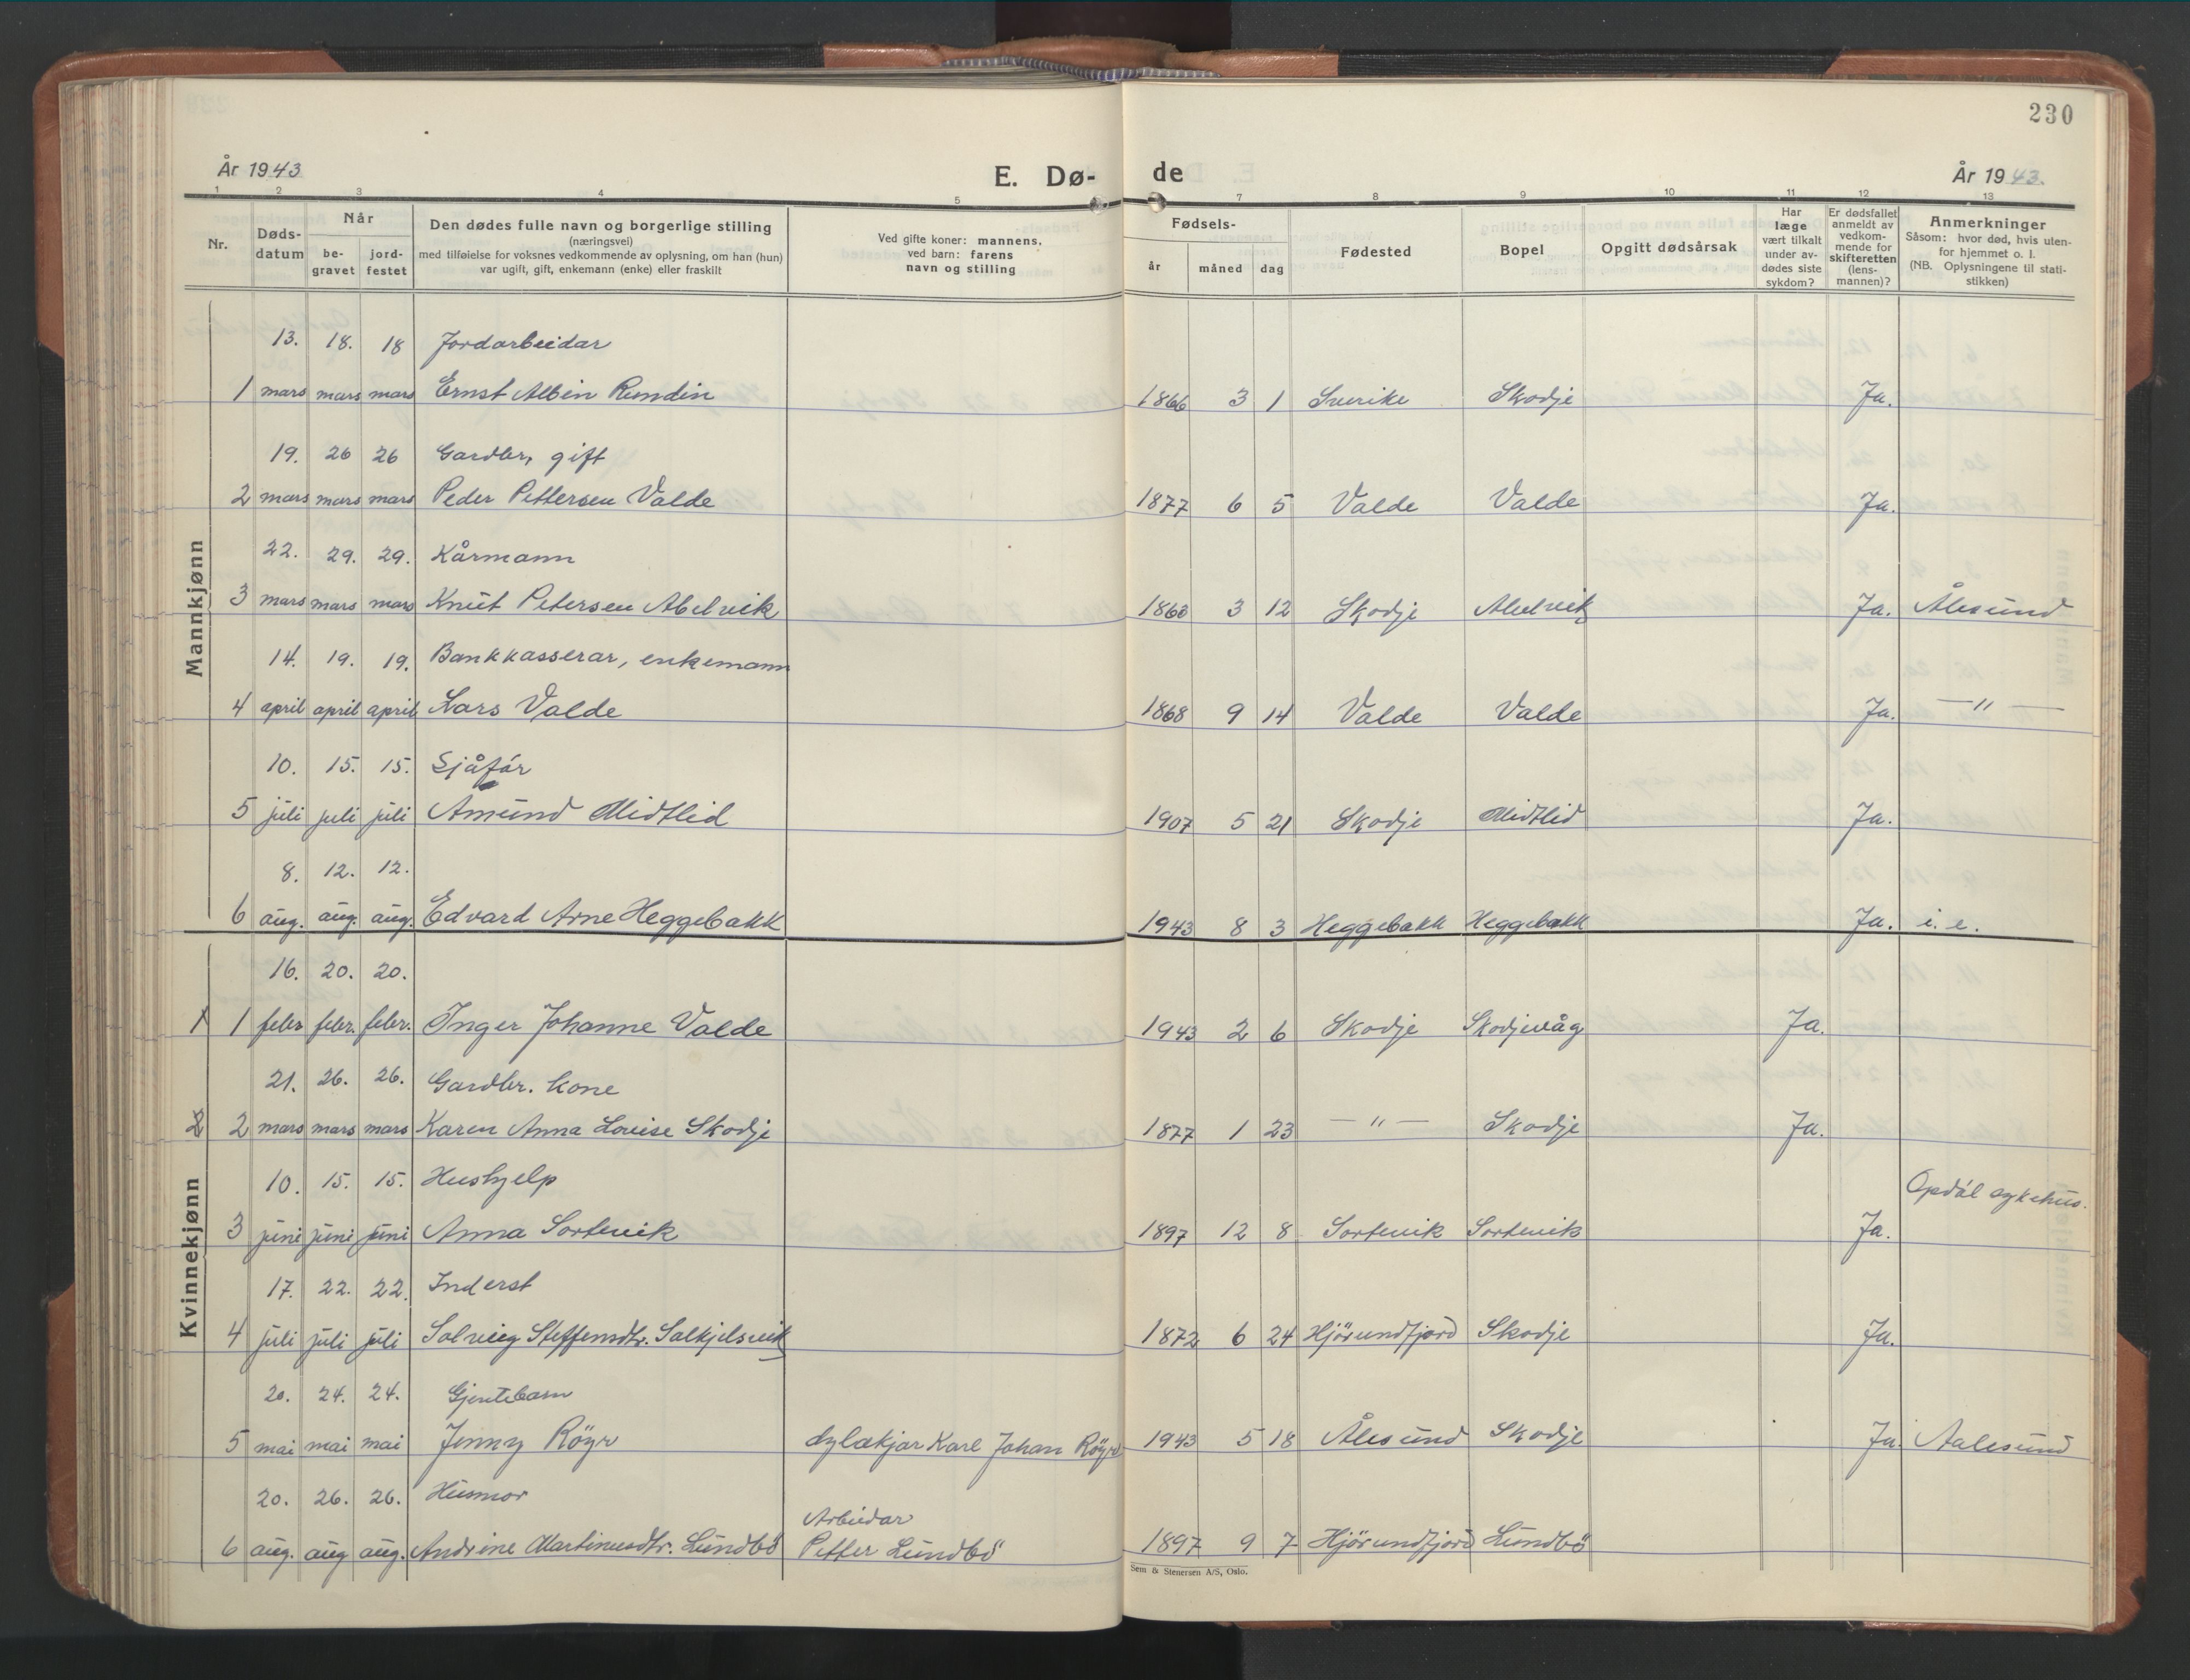 230
År 1943
E. Dø-
de
År 1943.
1 2 3 4 5 7 8 9 10 11 12 13
Nr.
Døds-
datum
Når
be-
gravet
jord-
festet
Den dødes fulle navn og borgerlige stilling
(næringsvei)
med tilføielse for voksnes vedkommende av oplysning, om han (hun)
var ugift, gift, enkemann (enke) eller fraskilt
Ved gifte koner: mannens,
ved barn: farens
navn og stilling
Fødsels-
år måned dag
Fødested
Bopel
Opgitt dødsårsak
Har
læge
vært tilkalt
under av-
dødes siste
sykdom?
Er dødsfallet
anmeldt av
vedkom-
mende for
skifteretten
(lens-
mannen)?
Anmerkninger
Såsom: hvor død, hvis uten-
for hjemmet o. l.
(NB. Oplysningene til stati-
stikken)
Mannkjønn
13. 18. 18 Jordarbeidar
1 mars mars mars Ernst Albin Rundin 1866 3 1 Sverike Skodje Ja.
19. 26 26 Gardbr, gift
2 mars mars mars Peder Pettersen Valde 1877 6 5 Valde Valde Ja.
22. 29. 29. Kårmann
3 mars mars mars Knut Petersen Abelvik 1863 3 12 Skodje Abelvik Ja. Ålesund
14. 19. 19. Bankkasserar, enkemann
4 april april april Lars Valde 1868 9 14 Valde Valde Ja. — " —
10. 15. 15. Sjåfør
5 juli juli juli Amund Midtlid 1907 5 21 Skodje Midtlid Ja.
8. 12. 12.
6 aug. aug. aug. Edvard Arne Heggebakk 1943 8 3 Heggebakk Heggebakk Ja. i. e.
Kvinnekjønn
16. 20. 20.
1 1 febr febr. febr. Inger Johanne Valde 1943 2 6 Skodje Skodjevåg Ja.
21. 26. 26. Gardbr. kone
2 2 mars mars mars Karen Anna Louise Skodje 1877 1 23 — " — Skodje Ja.
10. 15. 15. Hushjelp Opdøl sykehus.
3 juni juni juni Anna Sortevik 1897 12 8 Sortevik Sortevik Ja.
17. 22. 22. Inderst
4 juli juli juli Solveig Steffensdtr. Solkjelsvik 1872 6 24 Hjörundfjord Skodje Ja.
20. 24. 24. Gjentebarn
5 mai mai mai Jenny Röyr Karl Johan Röyr 1943 5 18 Ålesund Skodje Ja. Aalesund
20. 26. 26. Husmor Arbeidar
6 aug. aug aug. Andrine Martinusdtr. Lundbö Petter Lundbö 1897 9 7 Hjörundfjord Lundbö
Sem & Stenersen A/S, Oslo.